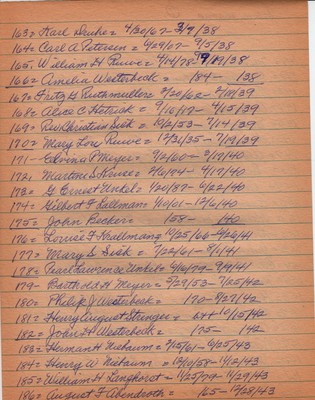 163= Karl Druke = 4/20/67 - 3/9/38
164= Carl A Petersen = 4/29/67 - 9/5/38
165. William H Ruwe = 4/14/78 19/38
166= Amelia Westerbeck = 184- 138
167= Fritz G Ruthmueller = 3/20/68 - 2/19/39
168= Alice C Hetrick = 9/16/17 - 4/15/39
169= Rev Christian Sisk = 10/2/53 - 7/14/39
170= Mary Lou Ruwe = 12/31/35 - 7/19/39
171- Meyer = 7/2/60 - 3/17/40
172, 2/6/74 - 4/17/40
173= G Ernest Unkel = 4/20/87 - 6/22/40
174= Hilbert F Lallmann 1/10/01 - 12/6/40
175= John Becker = 158- 140
176= F Krallmann 10/25/66 - 9/26/41
177= Mary S Sisk = 7/22/61 - 8/1/41
178= Pearl Lawrence Unkel = 4/16/79 - 9/9/41
179= Barthold H Meyer = 9/29/53 - 7/25/42
180= Philip J Westerbeck = 170 - 8/27/42
181= Henry August Stenger = 10/15/42
182= John H Westerbeck = 175- 142
183= Herman H Niebaum = 9/15/61 - 6/25/43
184= Henry W Niebaum = 12/10/58 - 10/2/43
185= William H Langhorst = 1/25/79 - 11/29/43
186= August F Abendroth = 165 - 12/28/43